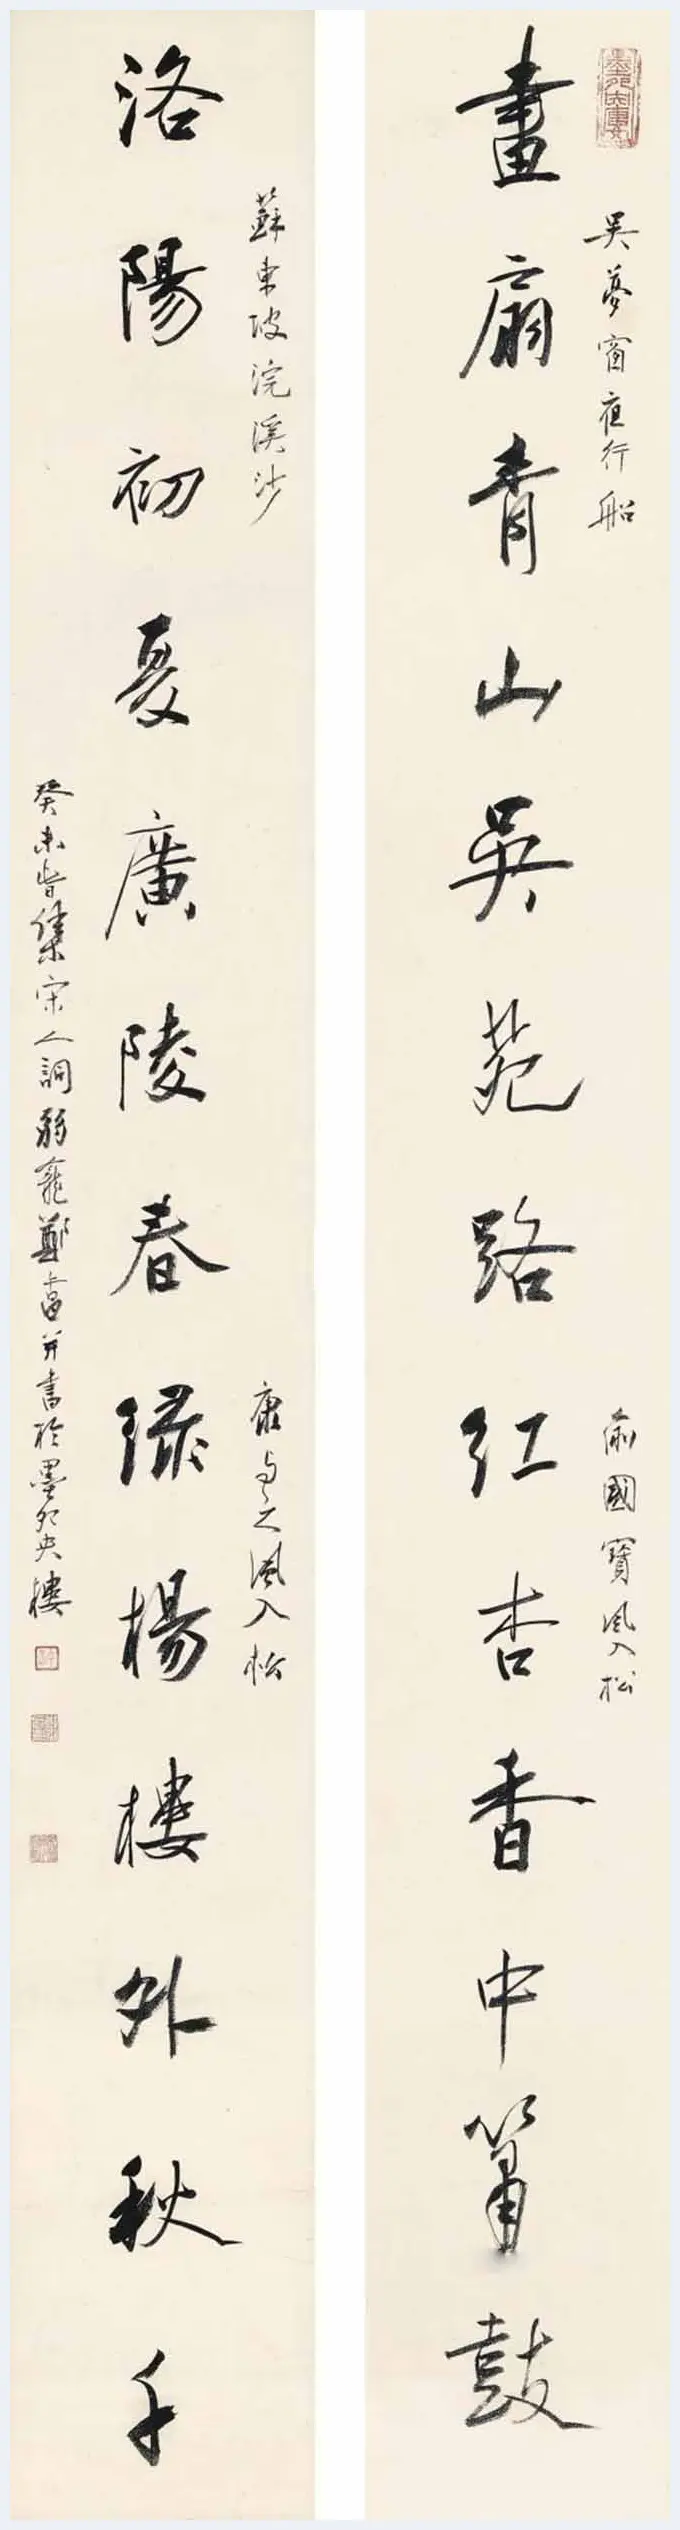 吳夢窗夜行船
俞國寶風入松
畫扇青山吳苑路紅杏香中簫鼓
蘇東坡浣溪沙
康与之風入松
洛陽初夏廣陵春綠楊樓外秋千
癸未昔集宋人詞弱龕鄭并書於墨樓